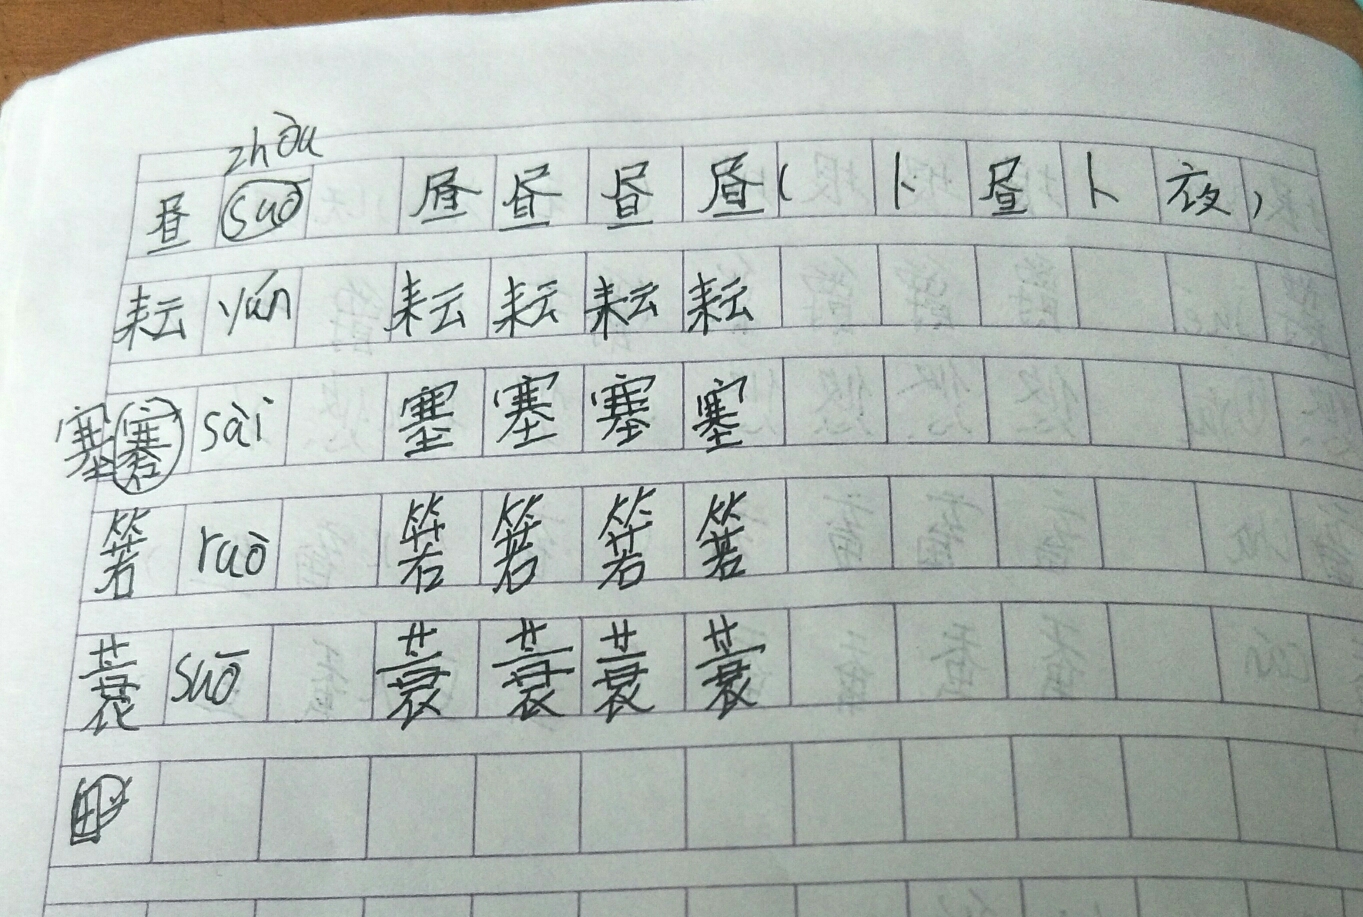 zhòu
昼 suō 昼 昼 昼 昼 ( 卜 昼 卜 夜 )
耘 yún 耘 耘 耘 耘
塞 sài 塞 塞 塞 塞
箬 ruò 箬 箬 箬 箬
蓑 suō 蓑 蓑 蓑 蓑